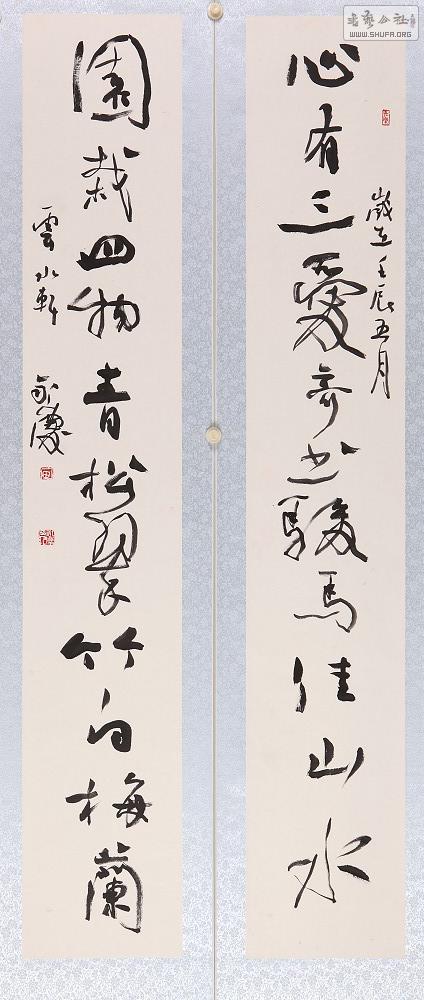 心有三爱奇书骏馬佳山水
歲在壬辰五月
園栽四物青松翠竹白梅蘭
雲水軒 永慶
书艺公社
WWW.SHUFA.ORG